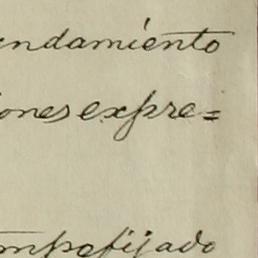 endamiento
iones expre=
empo fijado